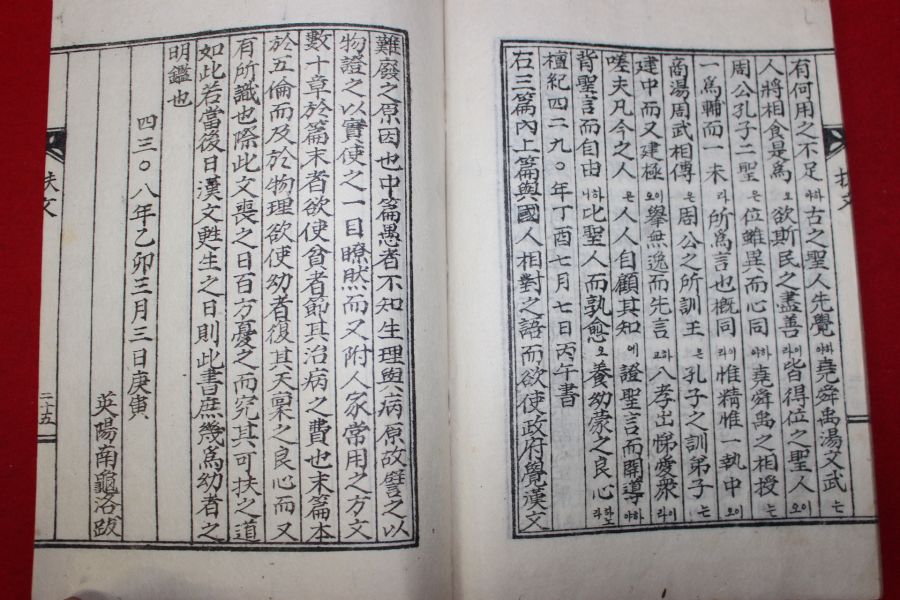 有何用之不足하야古之聖人先覺하야堯舜禹湯文武는
人將相食是爲오欲斯民之盡善이라皆得位之聖人이오
周公孔子二聖은位雖異而心同하야堯舜禹之相授는
一爲輔而一未라所爲言也槪同이라惟精惟一執中이오
商湯周武相傳은周公之所訓王은孔子之訓弟子는
建中而又建極이오擧無逸而先言하고入孝出悌愛衆이라
嗟夫凡今之人은人人自顧其知에證聖言而開導하야
背聖言而自由하니比聖人而孰愈오養幼蒙之良心하노라
檀紀四二九〇年丁酉七月七日丙午書
右三篇內上篇與國人相對之語而欲使政府覺漢文
難廢之原因也中篇愚者不知生理與病原故譬之以
物證之以實使之一目瞭然而又附人家常用之方文
數十章於篇末者欲使貧者節其治病之費也末篇本
於五倫而及於物理欲使幼者復其天稟之良心而又
有所識也際此文喪之日百方憂之而究其可扶之道
如此若當後日漢文甦生之日則此書庶幾爲幼者之
明鑑也
四三〇八年乙卯三月三日庚寅
英陽南龜洛跋
扶文
二十五